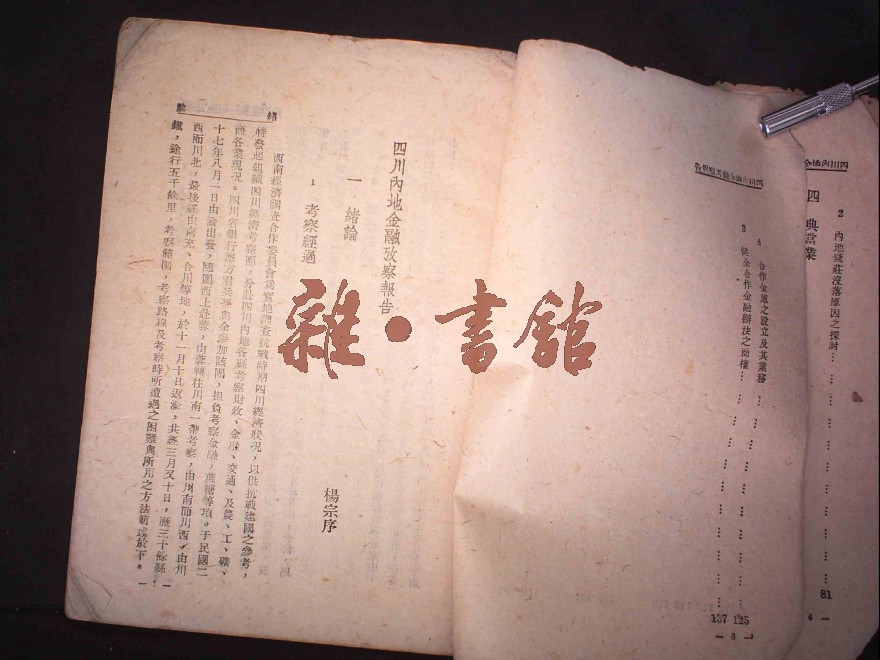 四川內地金融考察報告
四 典當業
2 內地錢莊沒落原因之探討
81
4
4 合作金庫之設立及其業務
125
3 健全合作金融辦法之商榷
137
6
四川內地金融攷察報告
楊宗序
一 緒論
1 考察經過
西南經濟調查合作委員會爲實地調查抗戰時期四川經濟狀況，以供抗戰建國之參考，
特發起組織四川經濟考察團，分赴四川內地各縣考察財政、金融、交通、及農、工、礦、
商各業現況。四川省銀行
參加該團，担負考察金融，蔗糖等項。于民國二
十七年八月一日由渝出發，隨團西上赴蓉，由蓉轉往川南一帶考察，由川南而川西，由川
西而川北，最後經由南充、合川等地，於十一月十日返渝，共經三月又十日，歷三十餘縣
鎮，途行五千餘里，考察範圍，考察路線及考察時所遭遇之困難與所用之方法簡述於下。
緒論
雜·書館